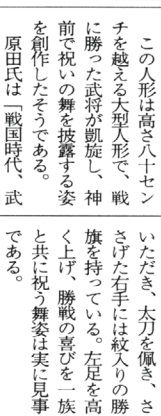 この人形は高さ八十セン
チを越える大型人形で、戦
に勝った武将が凱旋し、神
前で祝いの舞を披露する姿
を創作したそうである。
原田氏は「戦国時代、武
いただき、太刀を佩き、さ
さげた右手には紋入りの勝
旗を持っている。左足を高
く上げ、勝戦の喜びを一族
と共に祝う舞姿は実に見事
である。